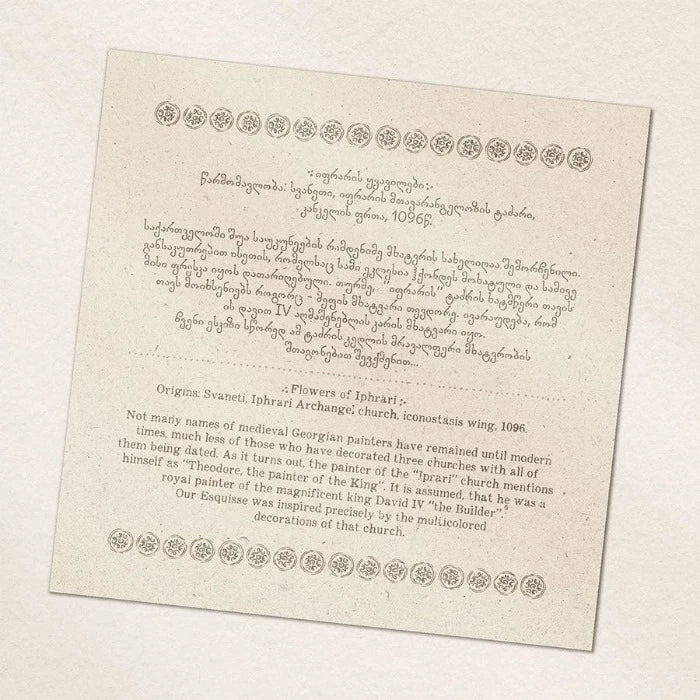 ·: იფრარის ყვავილები :·
წარმომავლობა: სვანეთი, იფრარის მთავარანგელოზის ტაძარი,
კანკელის ფრთა, 1096წ.
საქართველოში შუა საუკუნეების რამდენიმე მხატვრის სახელიღაა შემორჩენილი.
განსაკუთრებით ისეთის, რომელსაც სამი ეკლესია ჰქონდეს მოხატული და სამივე
მისი ფრესკა იყოს დათარიღებული. თურმე, "იფრარის" ტაძრის ხატმწერი თავის
თავს მოიხსენიებს როგორც - მეფის მხატვარი თევდორე. ივარაუდება, რომ
ის დავით IV აღმაშენებლის კარის მხატვარი იყო.
ჩვენი ესკიზი სწორედ ამ ტაძრის კედლის მრავალფერი მხატვრობის
შთაგონებით შევქმენით...
.:. Flowers of Iphrari :.
Origins: Svaneti, Iphrari Archangel church, iconostasis wing, 1096.
Not many names of medieval Georgian painters have remained until modern
times, much less of those who have decorated three churches with all of
them being dated. As it turns out, the painter of the "Iprari" church mentions
himself as "Theodore, the painter of the King". It is assumed, that he was a
royal painter of the magnificent king David IV "the Builder".
Our Esquisse was inspired precisely by the multicolored
decorations of that church.